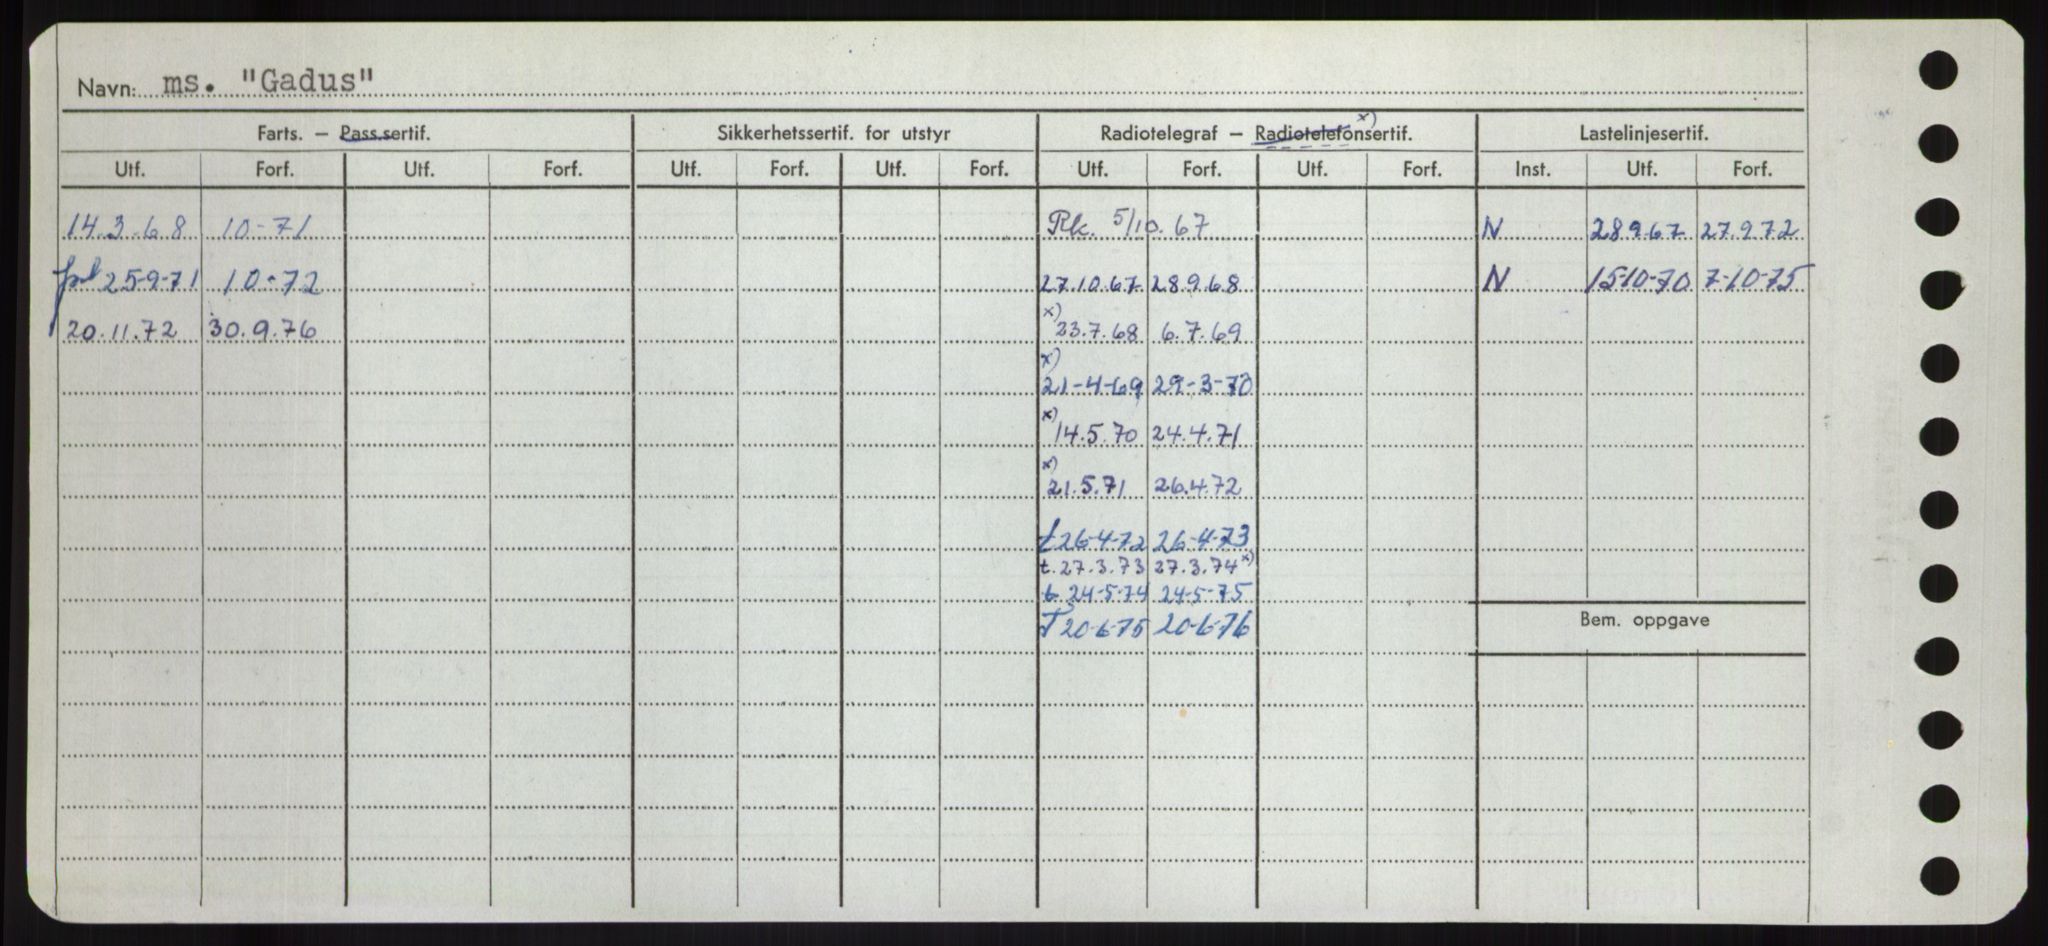 Navn: ms. "Gadus"
Farts. — Pass.sertif. Sikkerhetssertif. for utstyr Radiotelegraf — Radiotelefonsertif. x) Lastelinjesertif.
Utf. Forf. Utf. Forf. Utf. Forf. Utf. Forf. Utf. Forf. Utf. Forf. Inst. Utf. Forf.
14.3.68 10-71 Rk. 5/10.67 N 28.9.67 27.9.72
25-9-71 10-72 27.10.67 28.9.68 N 15-10-70 7-10-75
20.11.72 30.9.76 x) 23.7.68 6.7.69
x) 21-4-69 29-3-70
x) 14.5.70 24.4.71
x) 21.5.71 26.4.72
t 26-4-72 26-4-73
t. 27.3.73 27.3.74 x)
t 24-5-74 24-5-75
Bem. oppgave
T 20-6-75 20-6-76